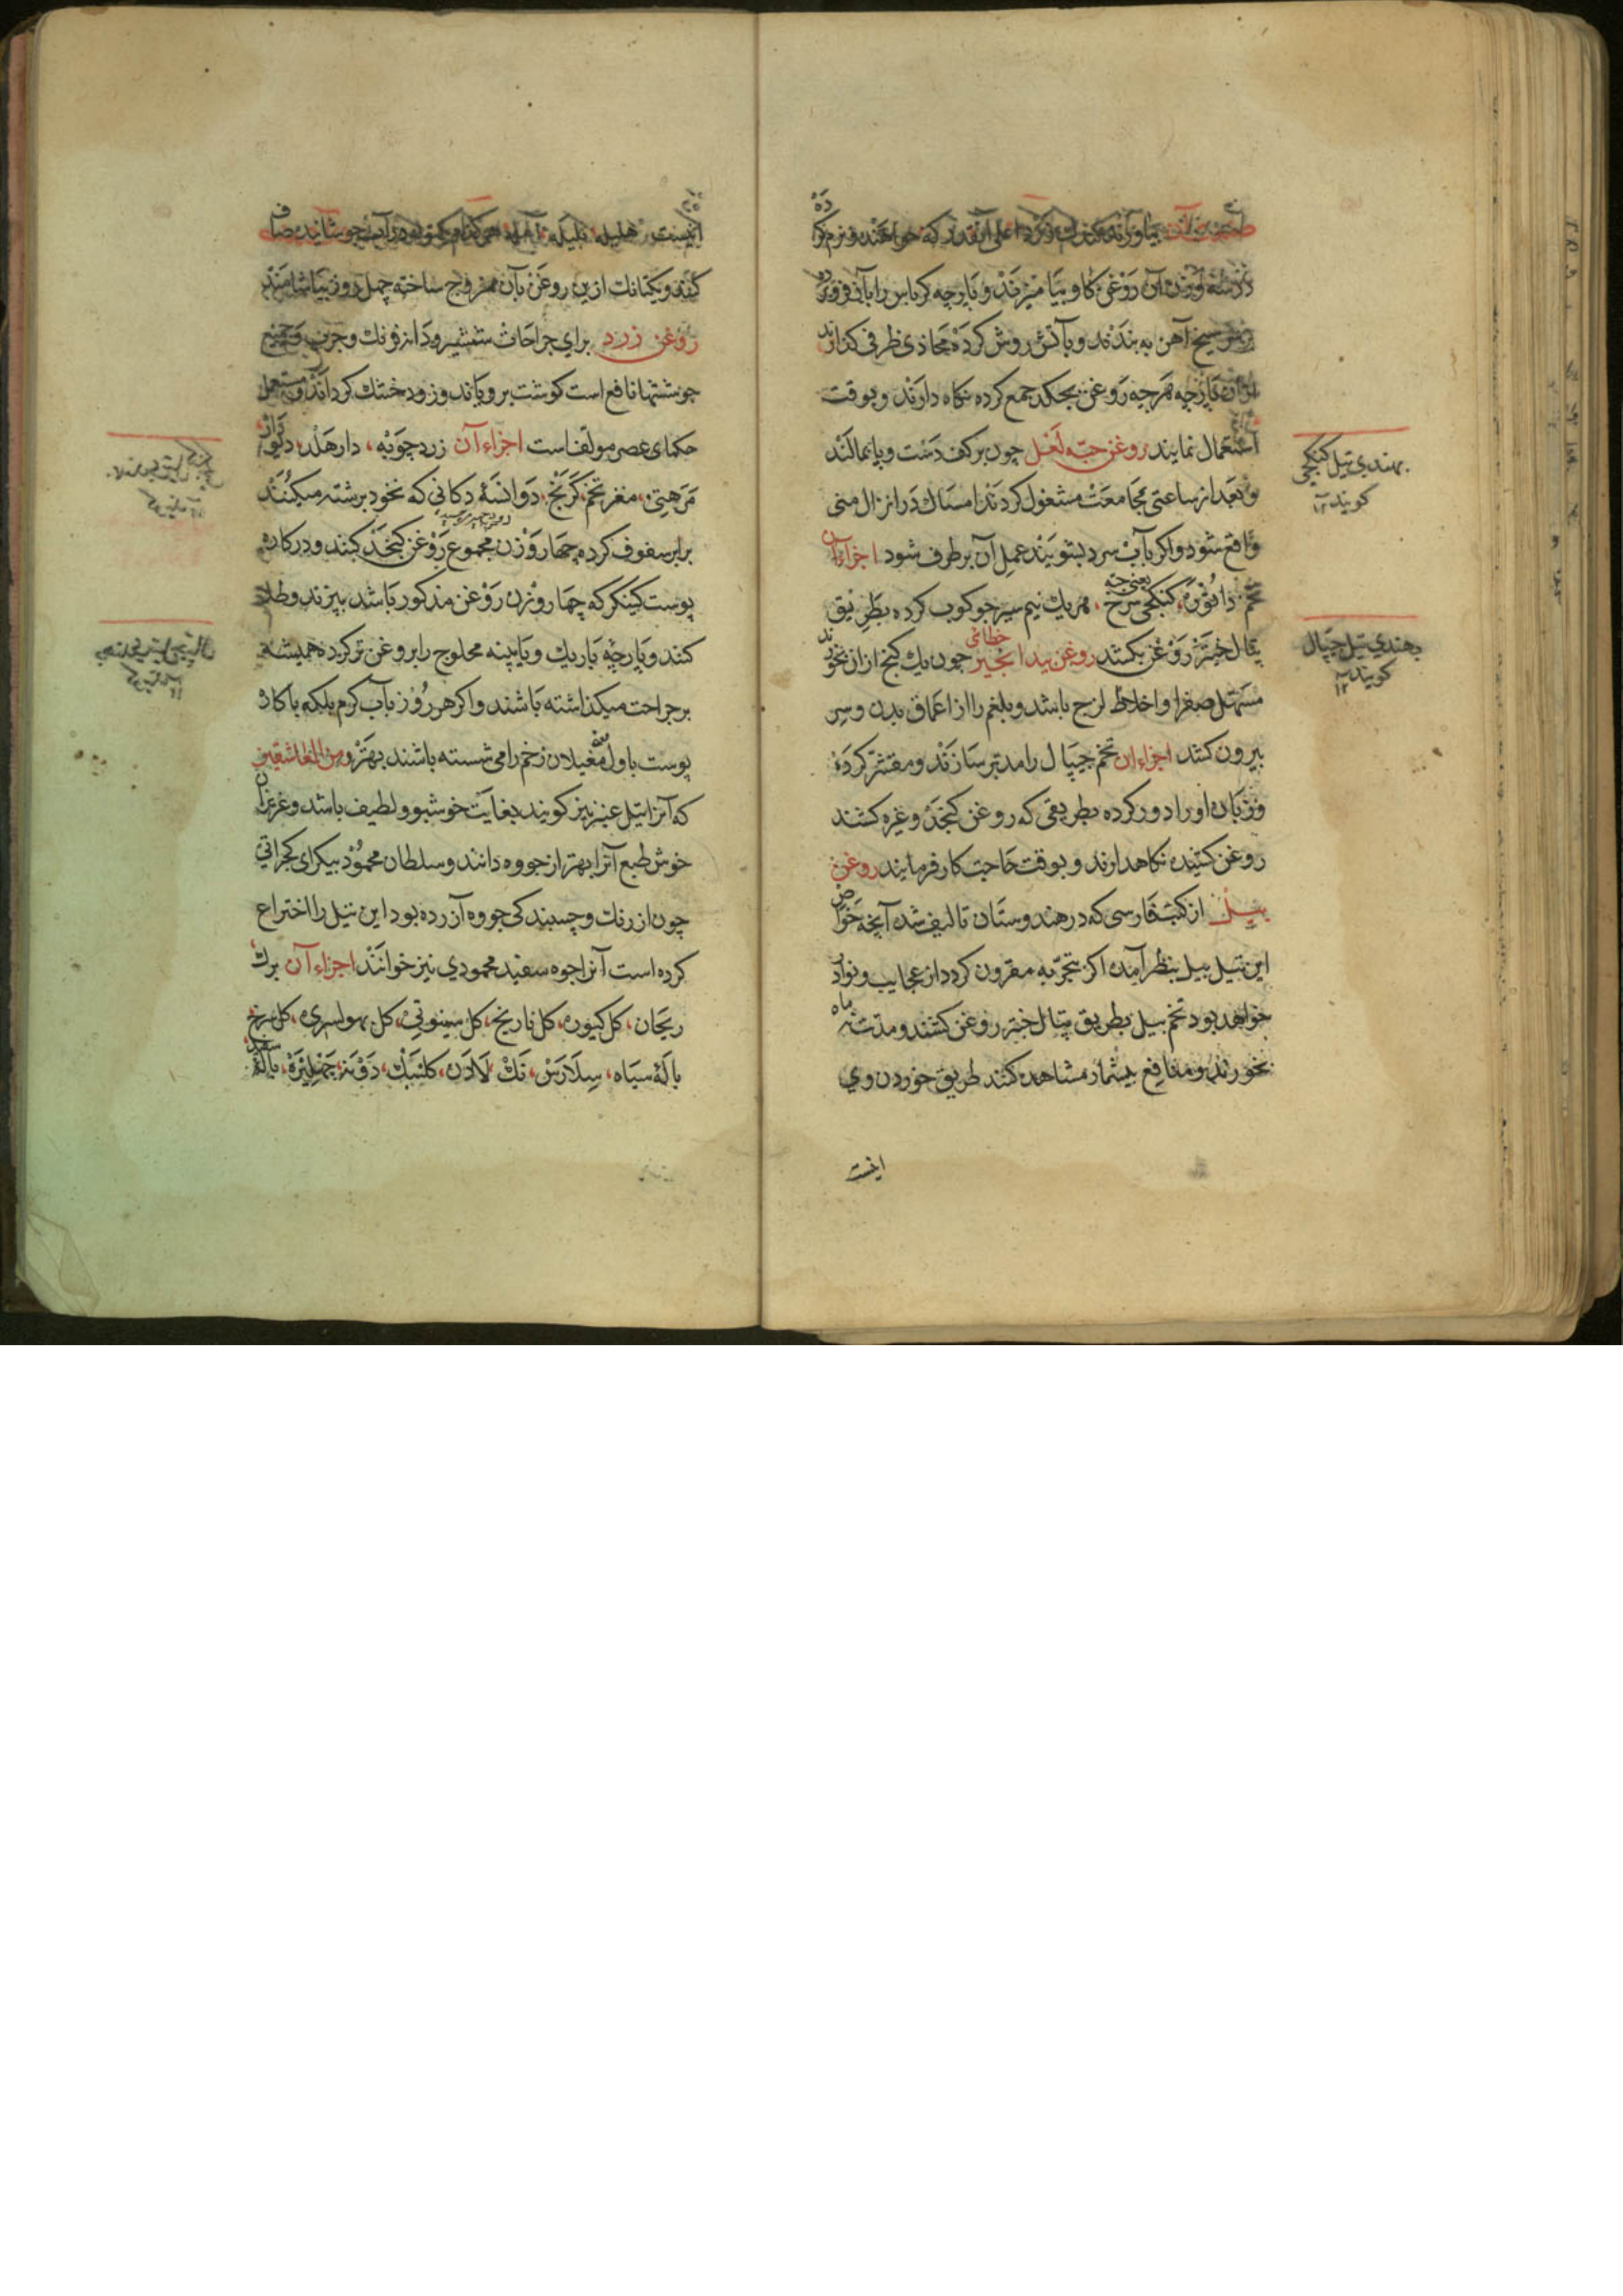 بیاورند کوکرد اعلی آنقدر که خواهند و نرم کرده
آن روغن کاو بیامیزند و پارچه کرباس را بآن
سیخ آهن به بندند و بآتش روش کرده محاذی ظرفی
پارچه هرچه روغن بچکد جمع کرده نکاه دارند و بوقت
استعمال نمایند روغن حبّه لعل چون بر کف دست و پا بمالند
و بعد از ساعتی مجامعت مشغول کردند امساك در انزال منی
واقع شود و اکر بآب سرد بشویند عمل آن برطرف شود اجزاء آن
تخم داتوره، کنکچی سرخ، هریك نیم سیر جوکوب کرده بطریق
پتال جنتر روغن بکشند روغن بید انجیر خطائی چون یك کنج ازان بخورند
مسهل صفرا و اخلاط لزج باشد و بلغم را از اعماق بدن و سر
بیرون کشد اجزاء ان تخم جیپال را مدبر سازند و مقشر کرده
و زبان او را دور کرده بطریقی که روغن کنجد و غیره کشند
روغن کشیده نکاهدارند و بوقت حاجت کار فرمایند روغن
بیل از کتب فارسی که در هندوستان تالیف شده آنچه خواص
این تیل بیل بنظر آمده اکر بتجربه مقرون کردد از عجایب و نوادر
خواهد بود تخم بیل بطریق پتال جنتر روغن کشند و مدت نه ماه
بخورند و منافع بیشمار مشاهده کنند طریق خوردن وی
اینست
بهندی تیل کنکچی
کویند ۱۲
بهندی تیل جپال
کویند ۱۲
اینست هلیله بلیله آمله آب جوشانیده صاف
کنند و یکتانك ازین روغن بآن ممزوج ساخته چهل روز بیاشامند
روغن زرد برای جراحات شمشیر و دانه فرنك و جرب و جمیع
جوششها نافع است کوشت برویاند و زود خشك کرداند و مستعمل
حکمای عصر مولف است اجزاء آن زرد چوبه، دار هلد، دیودار
مرهتی، مغز تخم کرنج، دوانسه دکانی که نخود برشته میکنند
برابر سفوف کرده چهار وزن مجموع روغن کنجد کنند و در کاره
پوست کینکر که چهار وزن روغن مذکور باشد بپزند و طلا
کنند و پارچه باریك و یا پنبه محلوج را بروغن تر کرده همیشه
بر جراحت میکذاشته باشند و اکر هر روز بآب کرم بلکه با کاره
پوست باول یعنی مغیلان زخم را می شسته باشند بهتر
که آنرا تیل عبیر نیز کویند بغایت خوشبو و لطیف باشد و عزیزان
خوش طبع آنرا بهتر از جووه دانند و سلطان محمود بیکرای کجراتی
چون از رنك و چسبندکی جووه آزرده بود این تیل را اختراع
کرده است آنرا جوه سفید محمودی نیز خوانند اجزاء آن برك
ریحان، کل کیوره، کل نارنج، کل سیوتی، کل بهولسری، کل سرخ
باله سیاه، سلارس، نك، لادن، کلنبك، دونه، باله سفید